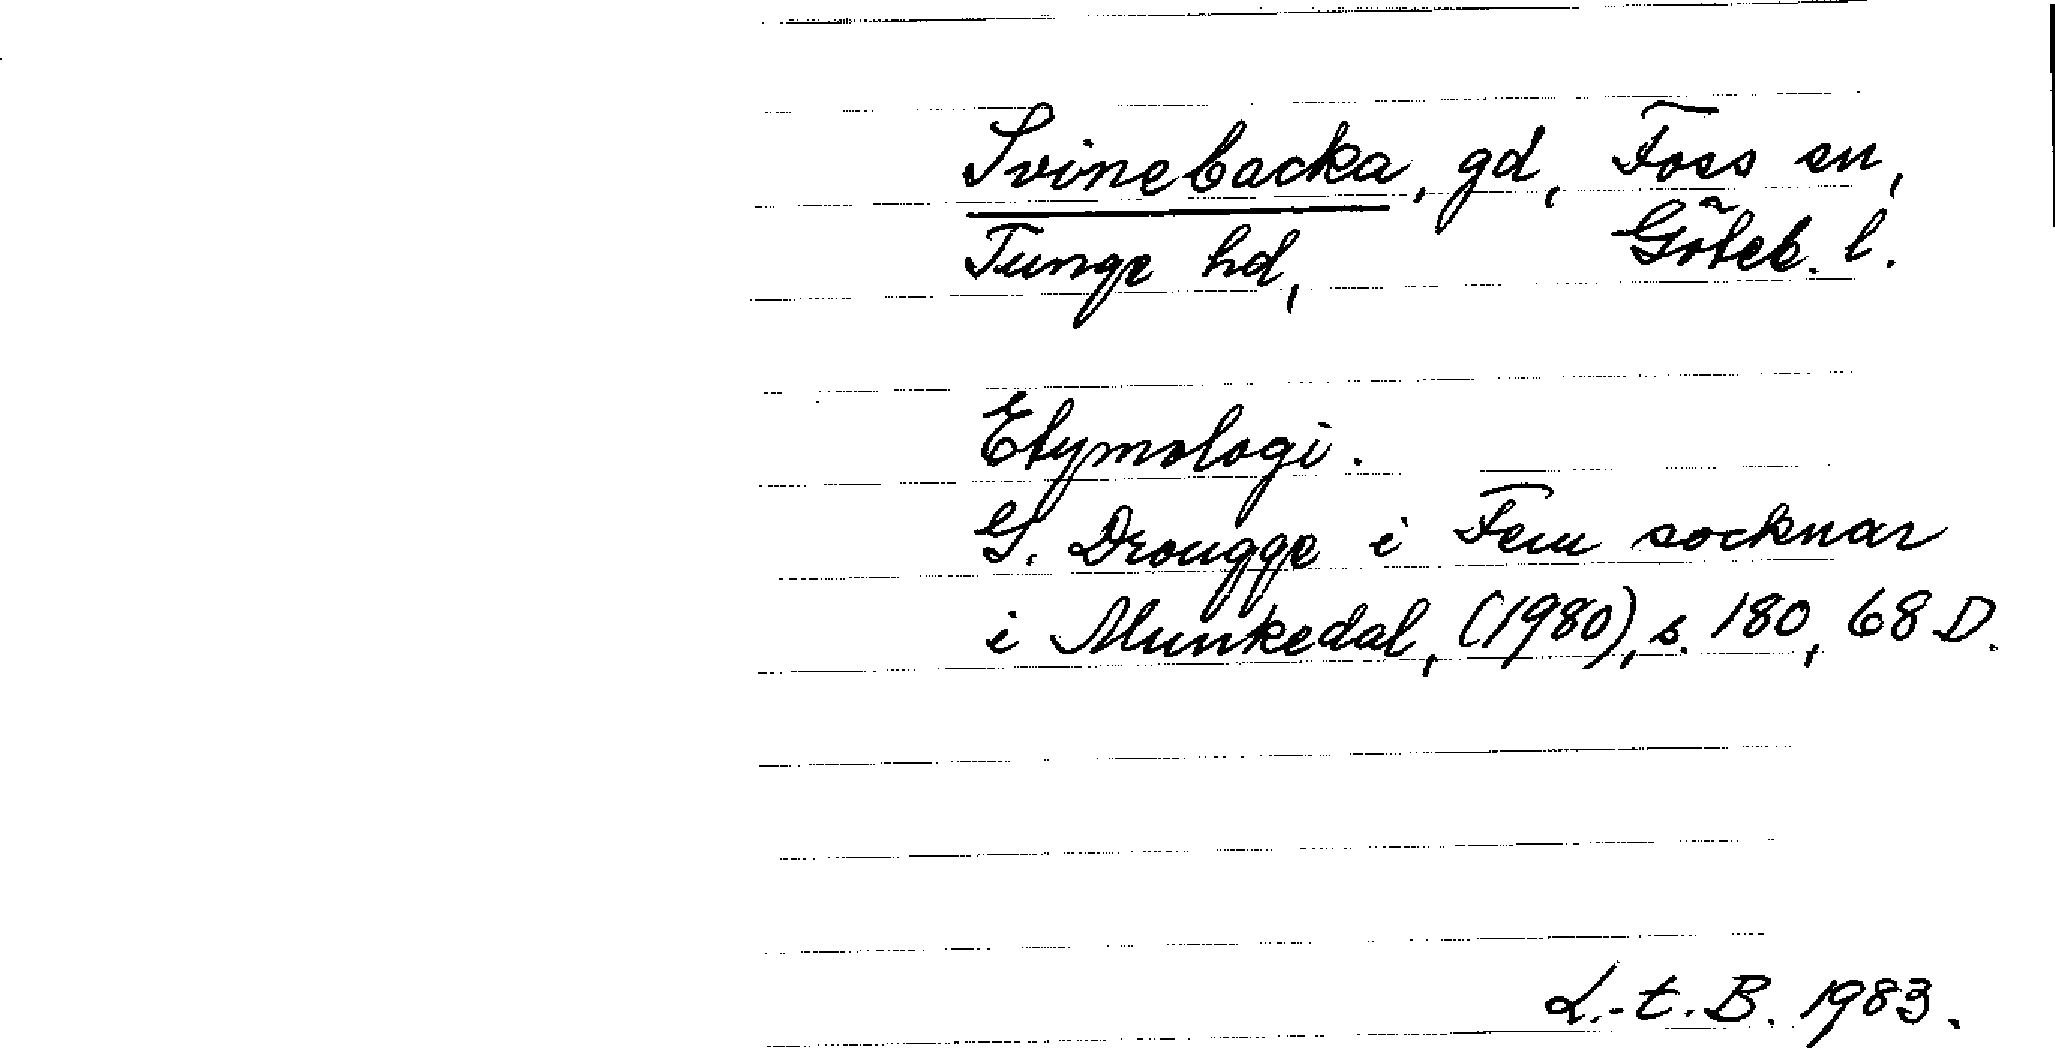 Svinebacka, gd, Foss sn,
Tunge hd, Göteb. l.
Etymologi.
G. Drougge i Fem socknar
i Munkedal, (1980), s. 180, 68 D.
L.-t. B. 1983.